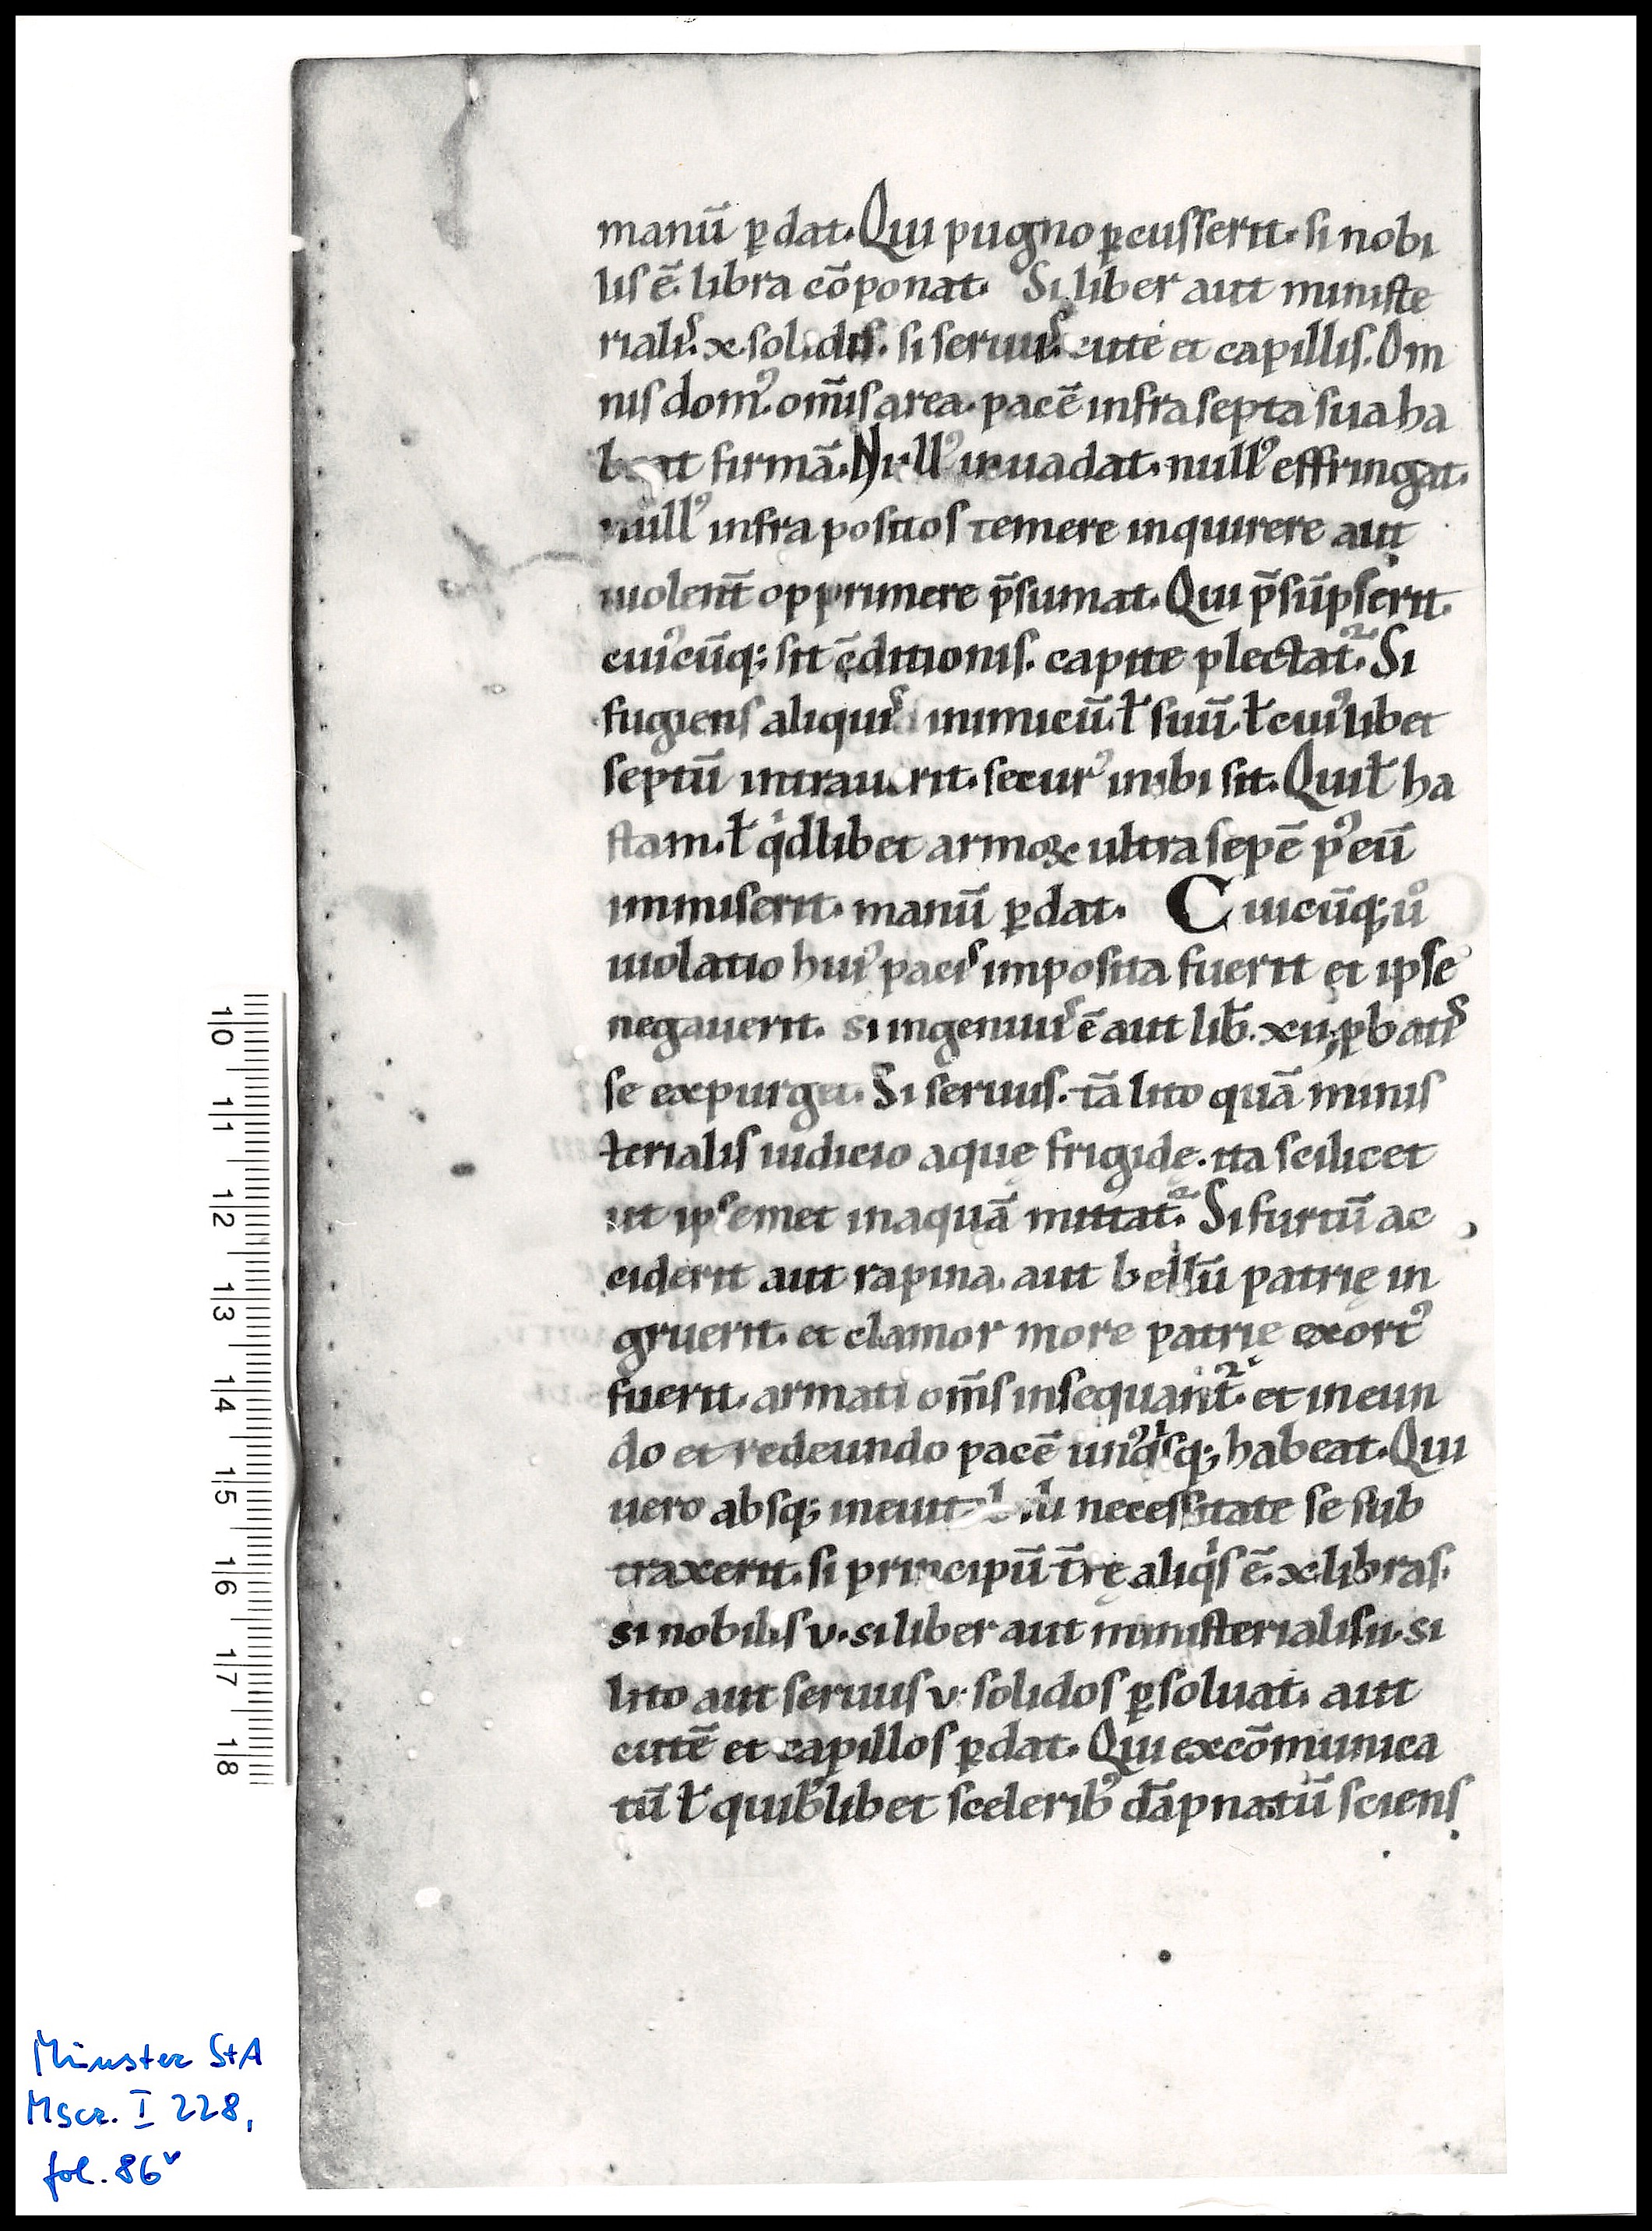 manū ꝑdat. Qui pugno ꝑcusserit. si nobi
lis ē. libra cōponat. Si liber aut ministe
rialis. x. solidis. si seruus. cute et capillis. Om
nis domꝰ. om̄is area. pacē infra septa sua ha
beat firmā. Nullꝰ inuadat. nullꝰ effringat.
nullꝰ infra positos temere inquirere aut
uiolent̄ opprimere p̄sumat. Qui p̄sūpserit.
cuiꝰcūq; sit c̄ditionis. capite plectat᷑. Si
fugiens aliquis inimicū. ł suū. ł cuiꝰlibet
septū intrauerit. securꝰ inibi sit. Qui ł ha
stam. ł qͥdlibet armoꝝ ultra sepē pꝰ eū
inmiserit. manū ꝑdat. Cuicūq; uͦ
uiolatio huiꝰ pacis imposita fuerit et ipse
negauerit. si ingenuus ē aut lib̄. xii. ꝓbatis
se expurget. Si seruus. tā lito quā minis
terialis iudicio aquę frigidę. ita scilicet
ut ipsemet in aquā mittat᷑. Si furtū ac
ciderit aut rapina. aut bellū patrię in
gruerit. et clamor more patrię exortꝰ
fuerit. armati om̄s insequant᷑. et in eun
do et redeundo pacē unꝰqͥsq; habeat. Qui
uero absq; ineuitabili necessitate se sub
traxerit. si principū t̄rę aliqͥs ē. x. libras.
si nobilis v. si liber aut ministerialis ii. si
lito aut seruus v. solidos ꝑsoluat. aut
cutē et capillos ꝑdat. Qui excōmunica
tū ł quibꝰlibet sceleribꝰ dāpnatū sciens
10 11 12 13 14 15 16 17 18
Münster StA
Mscr. I 228,
fol. 86ᵛ